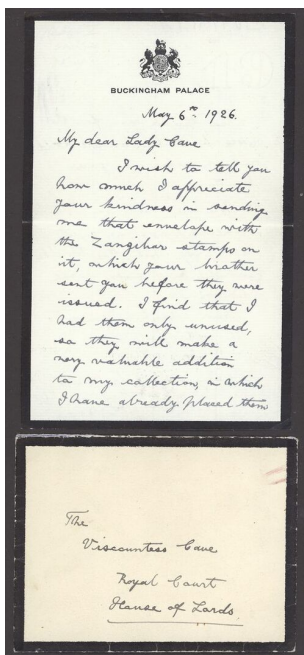 BUCKINGHAM PALACE
May 6th 1926.
My dear Lady Cave
I wish to tell you
how much I appreciate
your kindness in sending
me that envelope with
the Zanzibar stamps on
it, which your brother
sent you before they were
issued. I find that I
had them only unused,
so they will make a
very valuable addition
to my collection, in which
I have already placed them
The
Viscountess Cave
Royal Court
House of Lords.